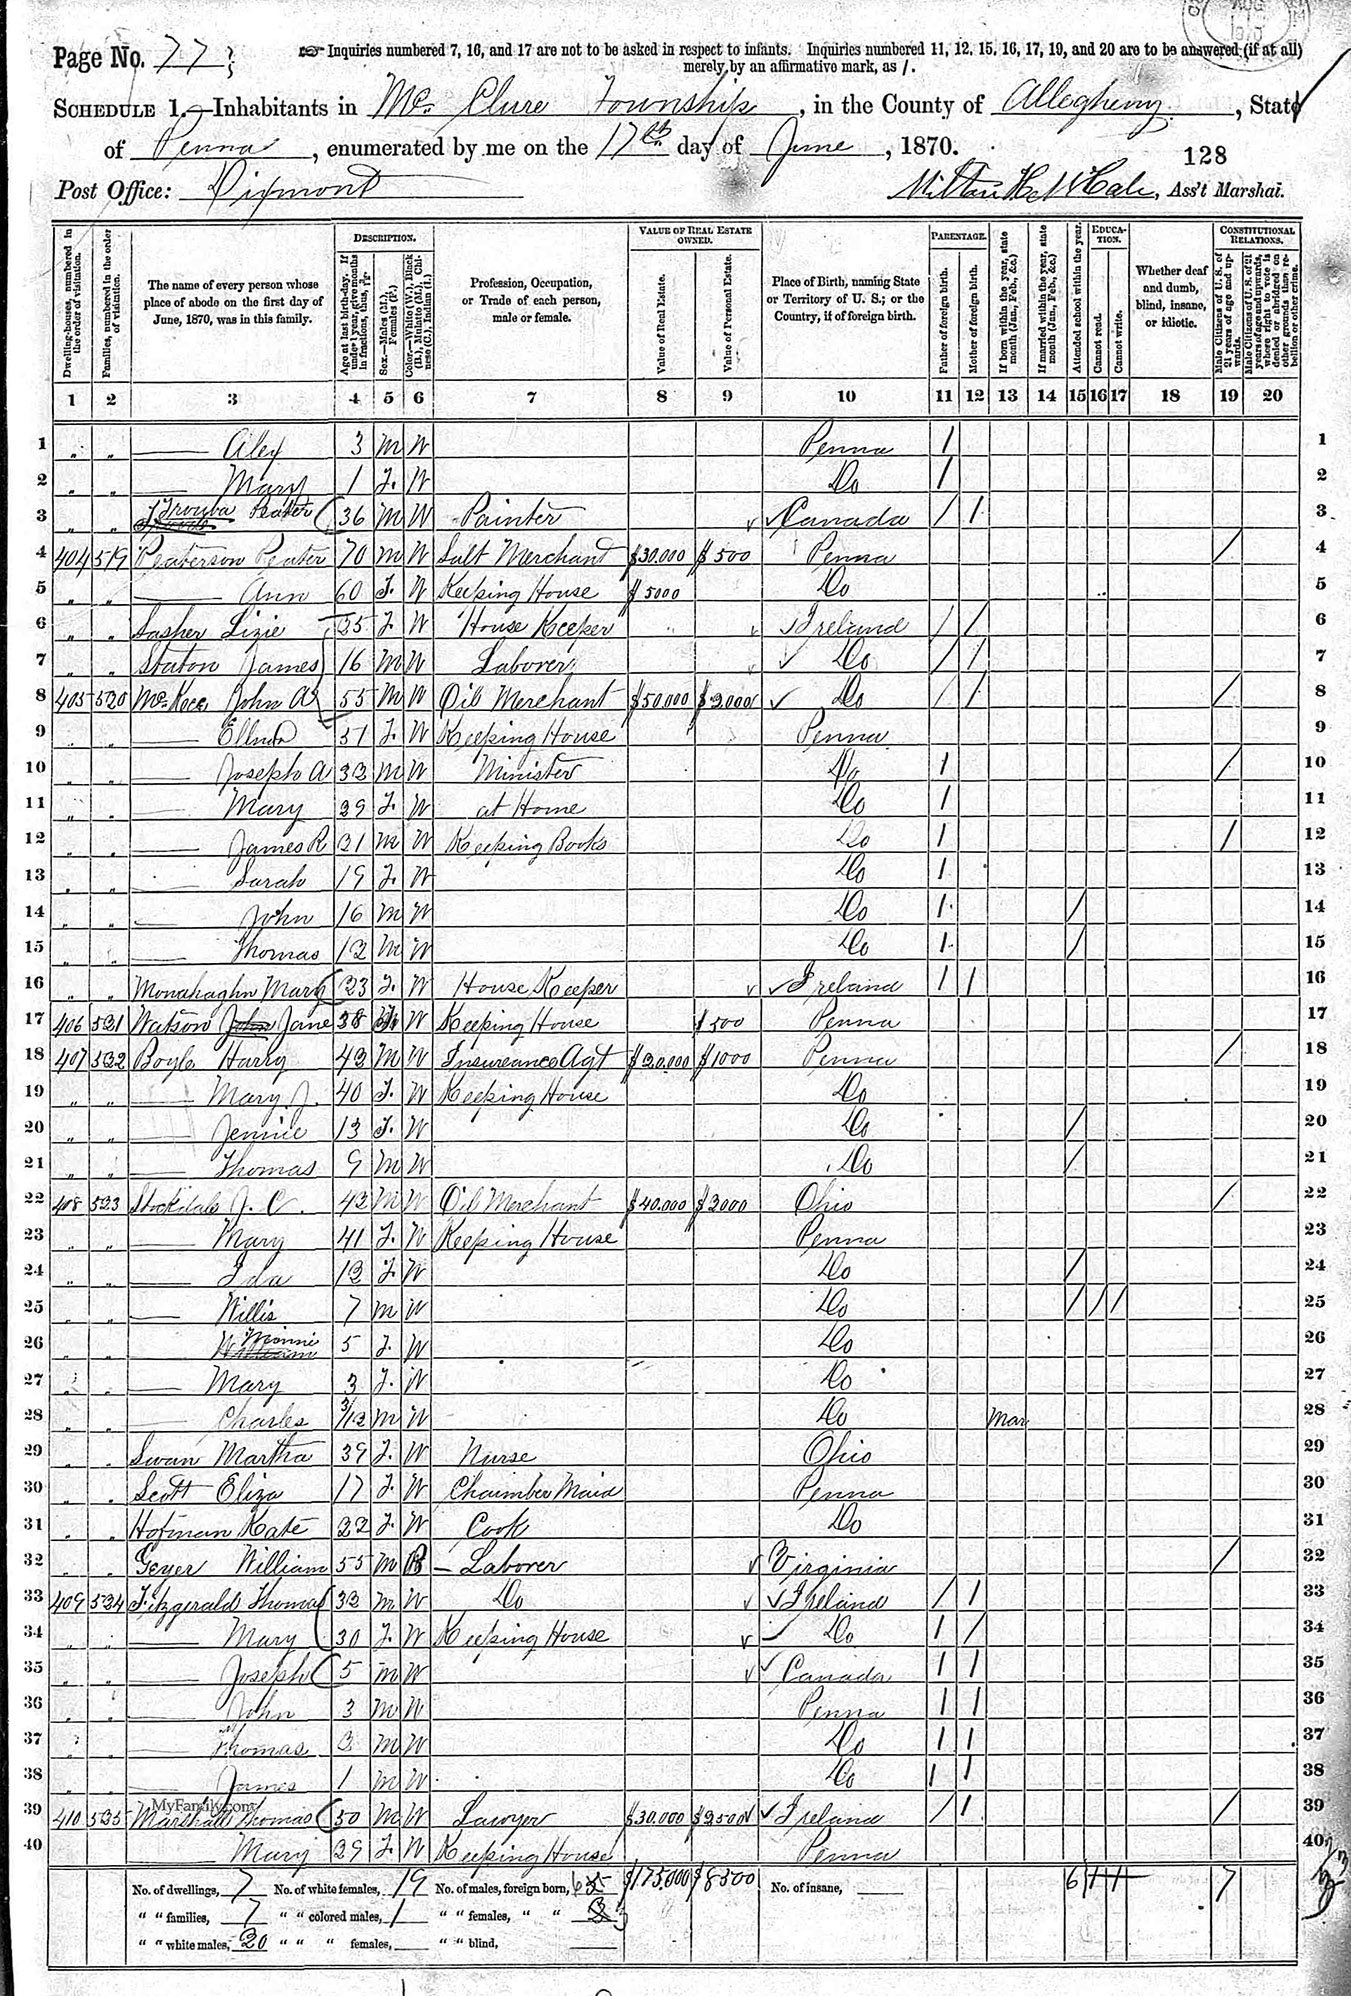 Page No. 77
☞ Inquiries numbered 7, 16, and 17 are not to be asked in respect to infants. Inquiries numbered 11, 12, 15, 16, 17, 19, and 20 are to be answered (if at all) merely by an affirmative mark, as /.
SCHEDULE 1.—Inhabitants in Mc. Clure Township, in the County of Allegheny, State
of Penna, enumerated by me on the 17th day of June, 1870.
128
Post Office: Dixmont
Ass't Marshal.
Dwelling-houses, numbered in the order of visitation.
Families, numbered in the order of visitation.
The name of every person whose place of abode on the first day of June, 1870, was in this family.
DESCRIPTION.
Age at last birth-day. If under 1 year, give months in fractions, thus,
Sex.—Males (M.), Females (F.)
Color.—White (W.), Black (B.), Mulatto (M.), Chinese (C.), Indian (I.)
Profession, Occupation, or Trade of each person, male or female.
VALUE OF REAL ESTATE OWNED.
Value of Real Estate.
Value of Personal Estate.
Place of Birth, naming State or Territory of U. S.; or the Country, if of foreign birth.
PARENTAGE.
Father of foreign birth.
Mother of foreign birth.
If born within the year, state month (Jan., Feb., &c.)
If married within the year, state month (Jan., Feb., &c.)
Attended school within the year.
EDUCATION.
Cannot read.
Cannot write.
Whether deaf and dumb, blind, insane, or idiotic.
CONSTITUTIONAL RELATIONS.
Male Citizens of U. S. of 21 years of age and upwards.
Male Citizens of U. S. of 21 years of age and upwards, whose right to vote is denied or abridged on other grounds than rebellion or other crime.
1 2 3 4 5 6 7 8 9 10 11 12 13 14 15 16 17 18 19 20
1 " " —— Aley 3 M W Penna / 1
2 " " —— Mary 1 F. W Do / 2
3 " " Peater 36 M W Painter Canada / / 3
4 404 519 Peaterson Peater 70 M W Salt Merchant $30.000 $500 Penna / 4
5 " " —— Ann 60 F. W Keeping House $5000 Do 5
6 " " Sasher Lizie 25 F. W House Keeper Ireland / / 6
7 " " Staton James 16 M W Laborer Do / / 7
8 405 520 McKee John A 55 M W Oil Merchant $50.000 $2.000 Do / / / 8
9 " " —— Ellnor 51 F. W Keeping House Penna 9
10 " " —— Joseph A 32 M W Minister Do / / 10
11 " " —— Mary 29 F. W at Home Do / 11
12 " " —— James R 21 M W Keeping Books Do / / 12
13 " " —— Sarah 19 F. W Do / 13
14 " " —— John 16 M W Do / / 14
15 " " —— Thomas 12 M W Do / / 15
16 " " Monahaghn Mary 23 F. W House Keeper Ireland / / 16
17 406 521 Watson John Jane 38 F. W Keeping House $500 Penna 17
18 407 522 Boyle Harry 42 M W Insureance Agt $20.000 $1000 Penna / 18
19 " " —— Mary J. 40 F. W Keeping House Do 19
20 " " —— Jennie 13 F. W Do / 20
21 " " —— Thomas 9 M W Do / 21
22 408 523 Stockdale J. C. 42 M W Oil Merchant $40.000 $2000 Ohio / 22
23 " " —— Mary 41 F. W Keeping House Penna 23
24 " " —— Ida 12 F. W Do / 24
25 " " —— Willis 7 M W Do / / / 25
26 " " Minnie 5 F. W Do 26
27 " " —— Mary 3 F. W Do 27
28 " " —— Charles 3/12 M W Do Mar 28
29 " " Swan Martha 39 F. W Nurse Ohio 29
30 " " Scott Eliza 17 F. W Chaimber Maid Penna 30
31 " " Hofman Kate 22 F. W Cook Do 31
32 " " Geyer William 55 M B – Laborer Virginia / 32
33 409 524 Fitzgerald Thomas 32 M W Do Ireland / / 33
34 " " —— Mary 30 F. W Keeping House Do / / 34
35 " " —— Joseph 5 M W Canada / / 35
36 " " —— John 3 M W Penna / / 36
37 " " —— Thomas 2 M W Do / / 37
38 " " —— James 1 M W Do / / 38
MyFamily.com
39 410 525 Marshall Thomas 50 M W Lawyer $30.000 $2500 Ireland / / / 39
40 —— Mary 29 F. W Keeping House Penna 40
No. of dwellings, 7 No. of white females, 19 No. of males, foreign born, $175.000 $8500 No. of insane, 6 7
" " families, 7 " " colored males, 1 " " females, " " 3
" " white males, 20 " " " females, " " blind,